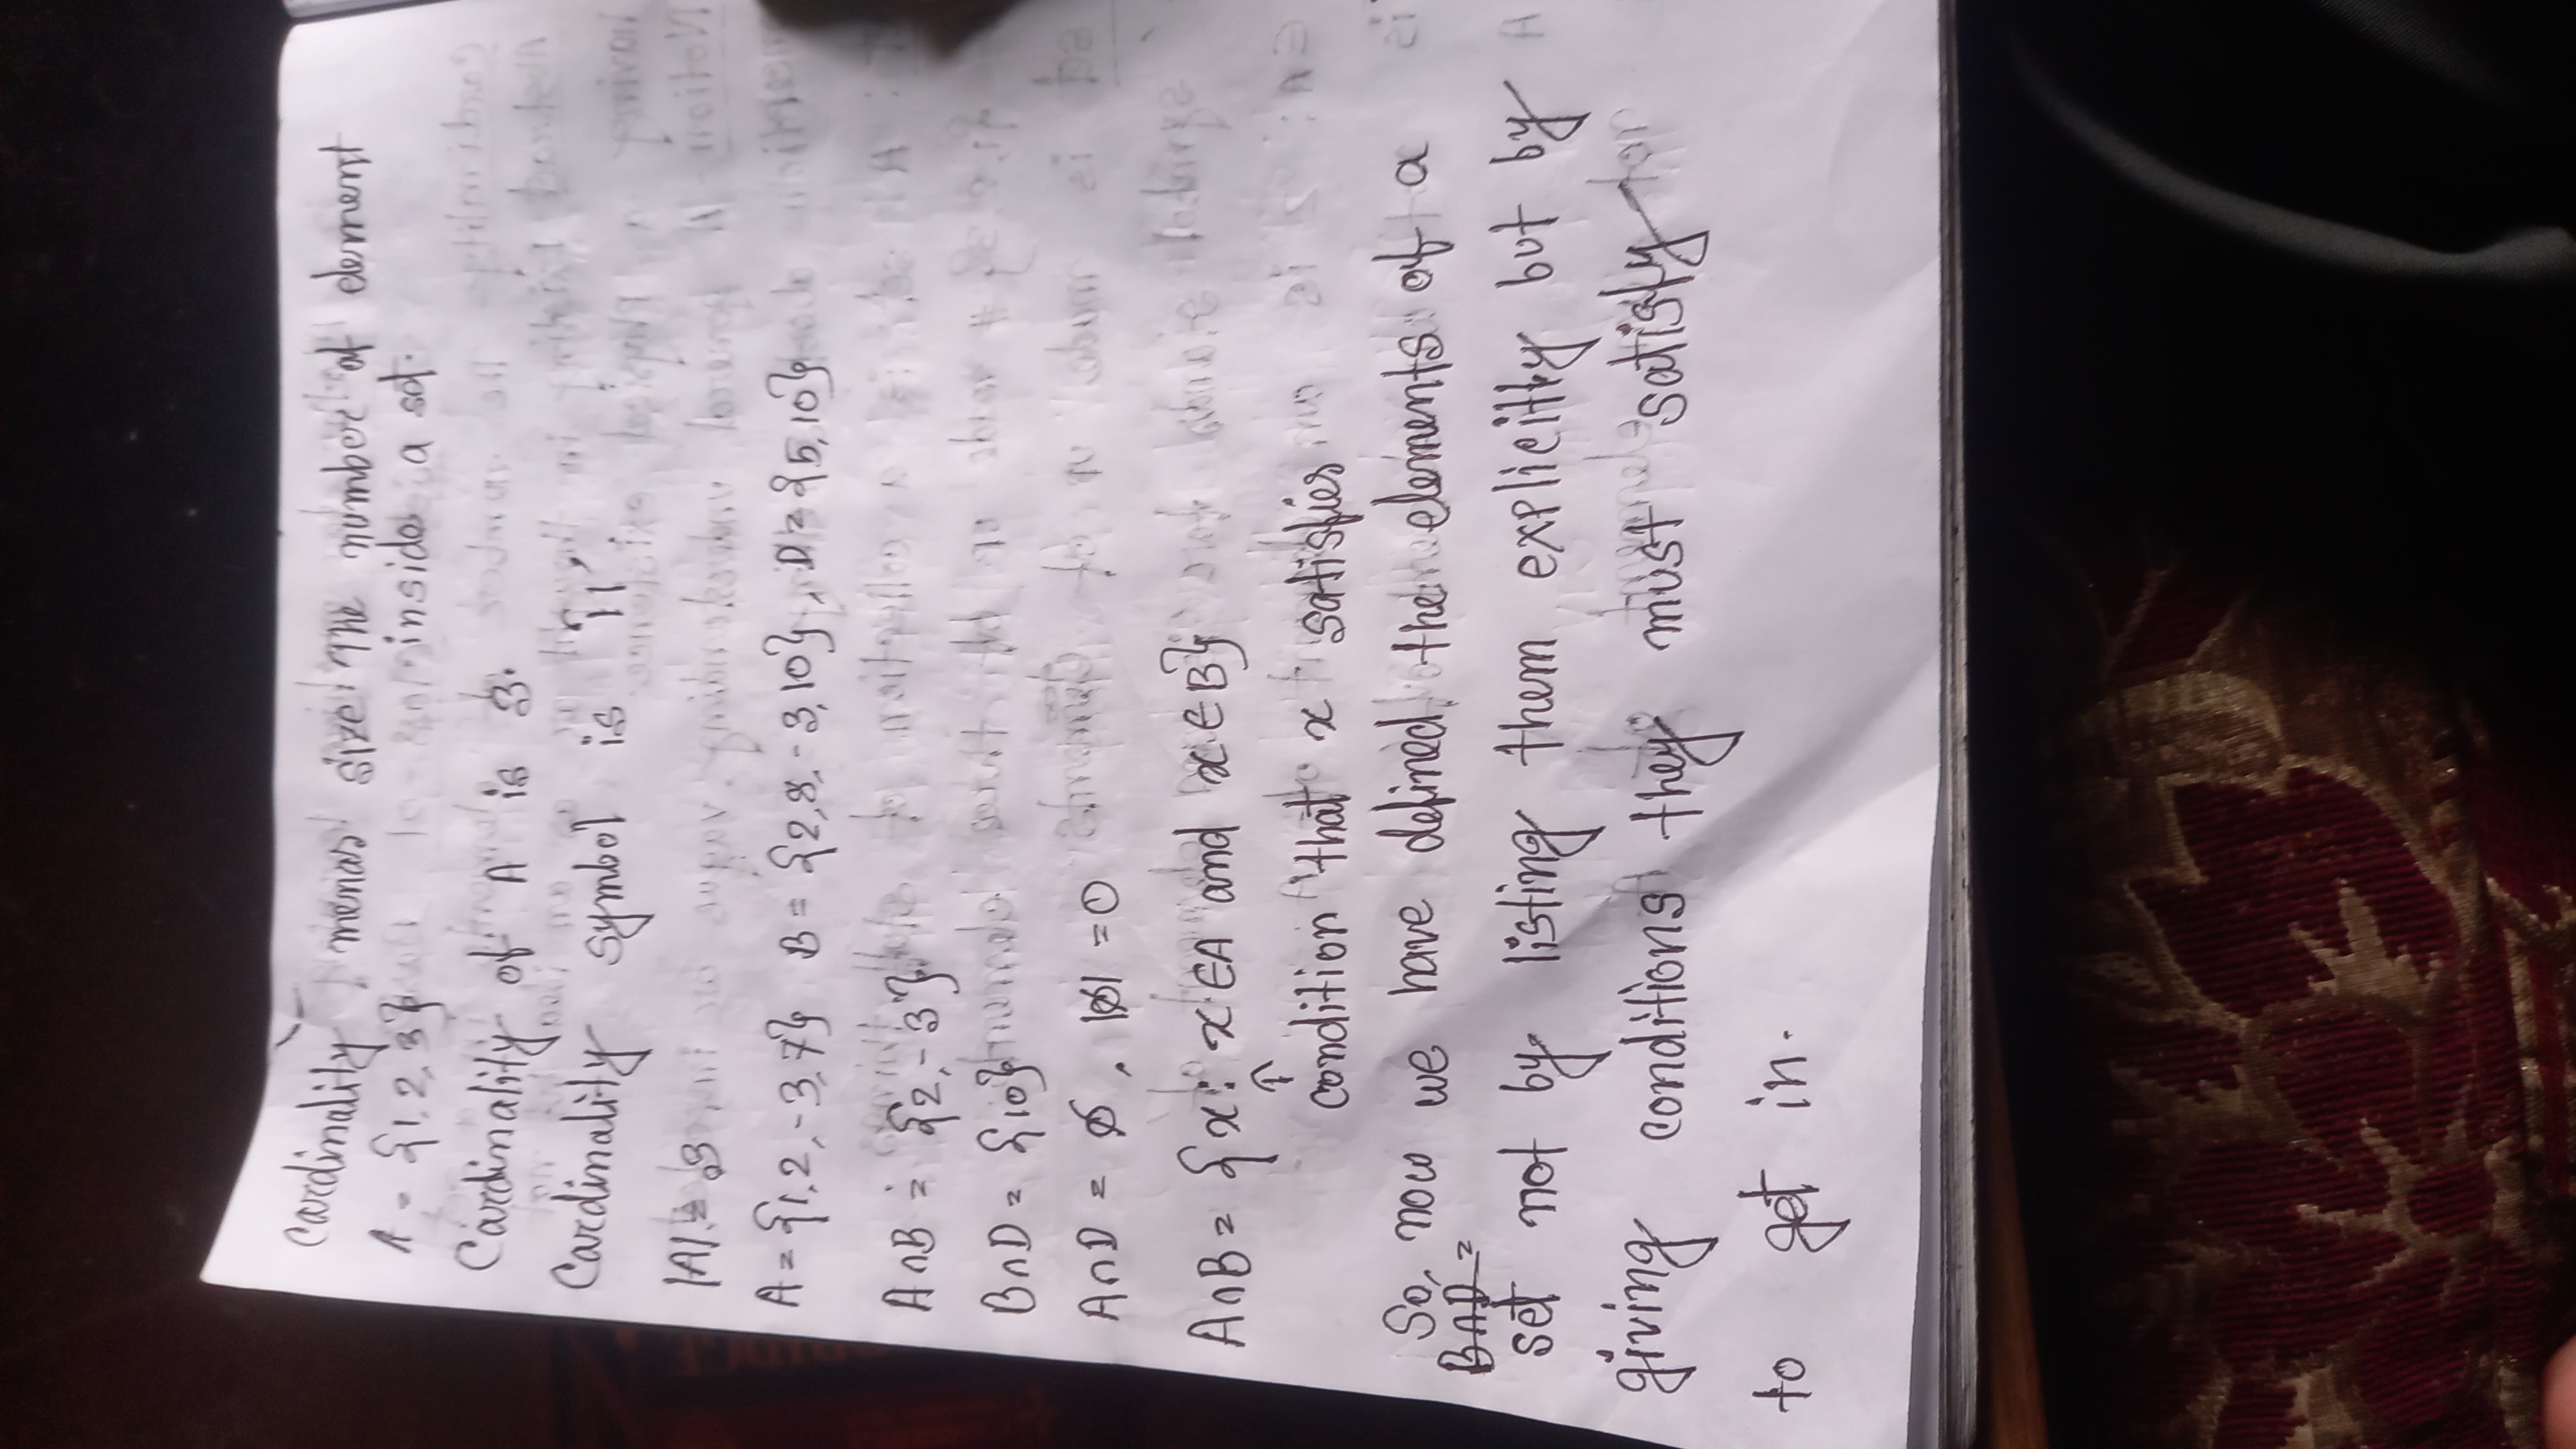 Cardinality :- menas size. The number of element
A = {1, 2, 3} inside a set.
Cardinality of A is 3.
Cardinality symbol is '| |'.
|A| = 3
A = {1, 2, -3, 7} B = {2, 8, -3, 10}, D = {5, 10}
A∩B = {2, -3}
B∩D = {10}
A∩D = ∅, |∅| = 0
A∩B = {x : x∈A and x∈B}
↑
condition that x satisfies
So, now we have defined the elements of a
B∩D =
set not by listing them explicitly but by
giving conditions they must satisfy
to get in.